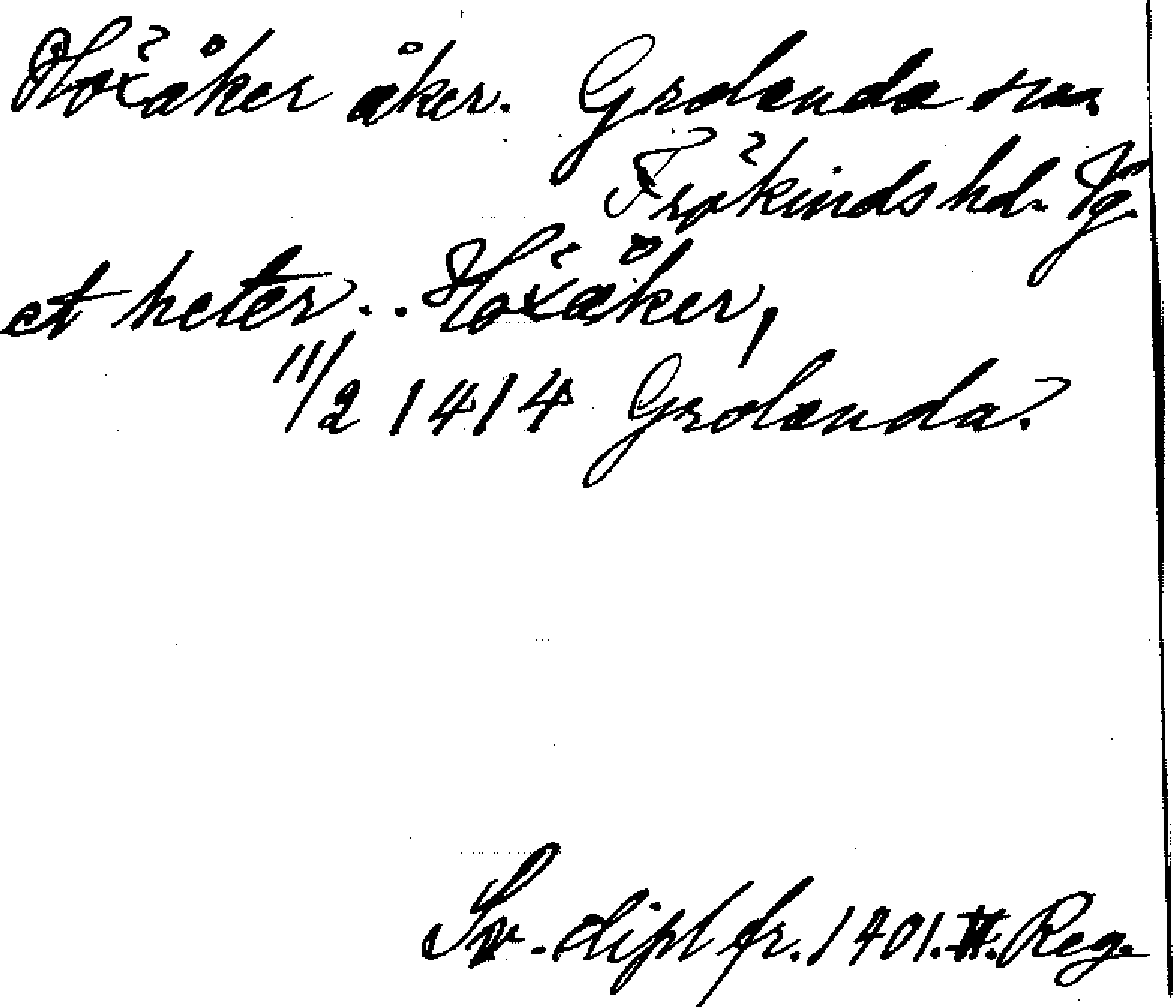 Höxåker åker. Grolanda sn.
Frökinds hd. Vg.
et heter.. Höxåker,
11/2 1414 Grolanda.
Sv. dipl fr. 1401. II. Reg.